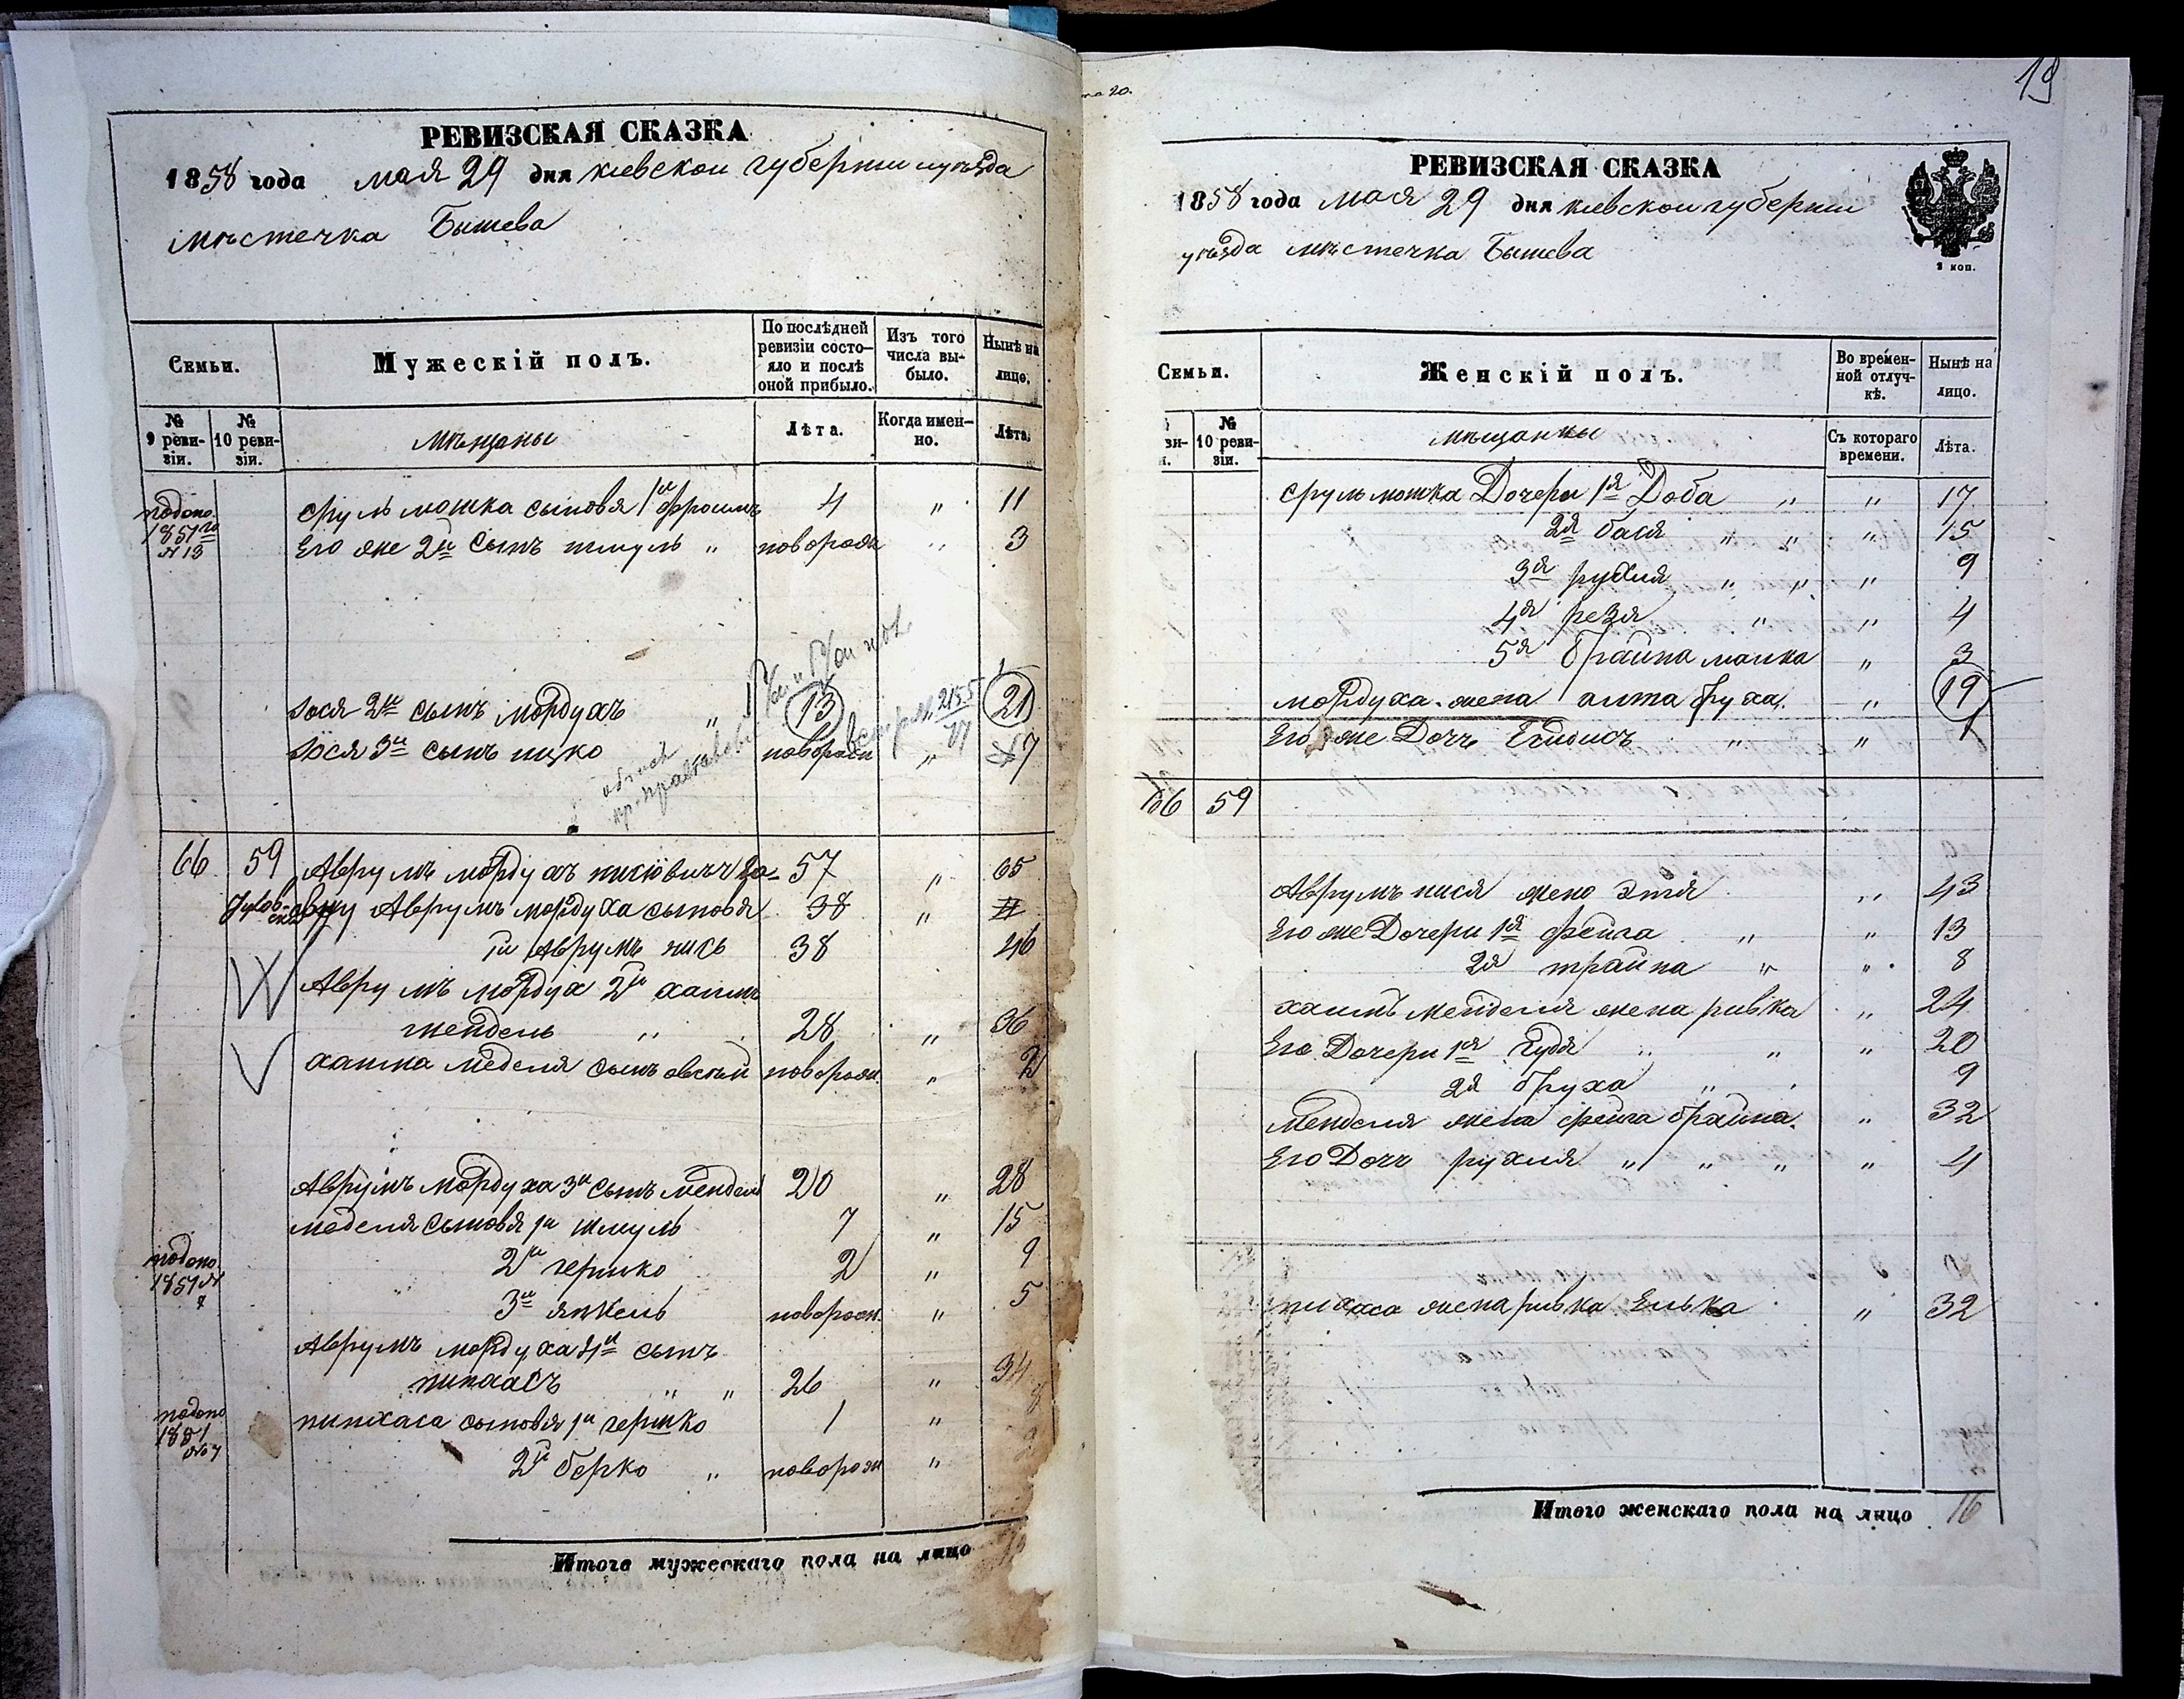 РЕВИЗСКАЯ СКАЗКА
1858 года мая 29 дня киевской губернии уѣзда
мѣстечка Бышева
Семьи.
Мужескій полъ.
По послѣдней ревизіи состо-яло и послѣ оной прибыло.
Изъ того числа вы-было.
Нынѣ на лицо.
№ 9 реви-зіи.
№ 10 реви-зіи.
мѣщаны
Лѣта.
Когда имен-но.
Лѣта.
сруль мошка сыновья 1й Фроимъ 4 " 11
1851го
№ 13
Его же 2й сынъ шмуль " новорож " 3
Іося 2й сынъ мордухъ " 13 21
2155
Іося 3й сынъ ицко новорожд " 7
66 59 Аврумъ мордухъ 57 " 65
Аврумъ мордуха сыновья 38 "
1й Аврумъ нись 38 46
Аврумъ мордух 2й хаимъ
мендель " 28 " 36
хаима меделя сынъ овсѣй новорожд. " 2
Аврумъ мордуха 3й сынъ мендель 20 " 28
меделя сыновья 1й шмуль 7 " 15
2й гершко 2 " 9
1851
3й янкель новорожд. " 5
Аврумъ мордуха 4й сынъ
пинхасъ " " 26 " 34
пинхаса сыновья 1й гершко 1 " 8
2й берко " новорож "
Итого мужескаго пола на лицо
19
РЕВИЗСКАЯ СКАЗКА
1858 года мая 29 дня киевской губернии
уѣзда мѣстечка Бышева
2 коп.
Семьи.
Женскій полъ.
Во времен-ной отлуч-кѣ.
Нынѣ на лицо.
№ 10 реви-зіи.
мѣщанки
Съ котораго времени.
Лѣта.
сруль мошка Дочери 1я Доба " " 17
2я бася " " " 15
3я рухля " " " 9
4я рейзя " " 4
5я брайна малка " 3
мордуха жена алта бруха. " 19
Его же Дочь " " 1
66 59
Аврумъ нися жена этя " 43
Его же Дочери 1я фейга " " 13
2я трайна " " 8
хаимъ менделя жена ривка " 24
Его Дочери 1я " " 20
2я бруха " 9
Менделя жена фейга брайна. " 32
Его Дочь рухля " " " " 4
пинхаса жена ривка Елька " 32
Итого женскаго пола на лицо 16